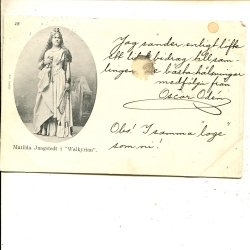 Jag sänder enligt löfte
ett litet bidrag till sam-
lingen. De bästa hälsningar
medföljer från
Oscar Odén
Obs! I samma "loge"
som ni!
Matilda Jungstedt i "Walkyrian".